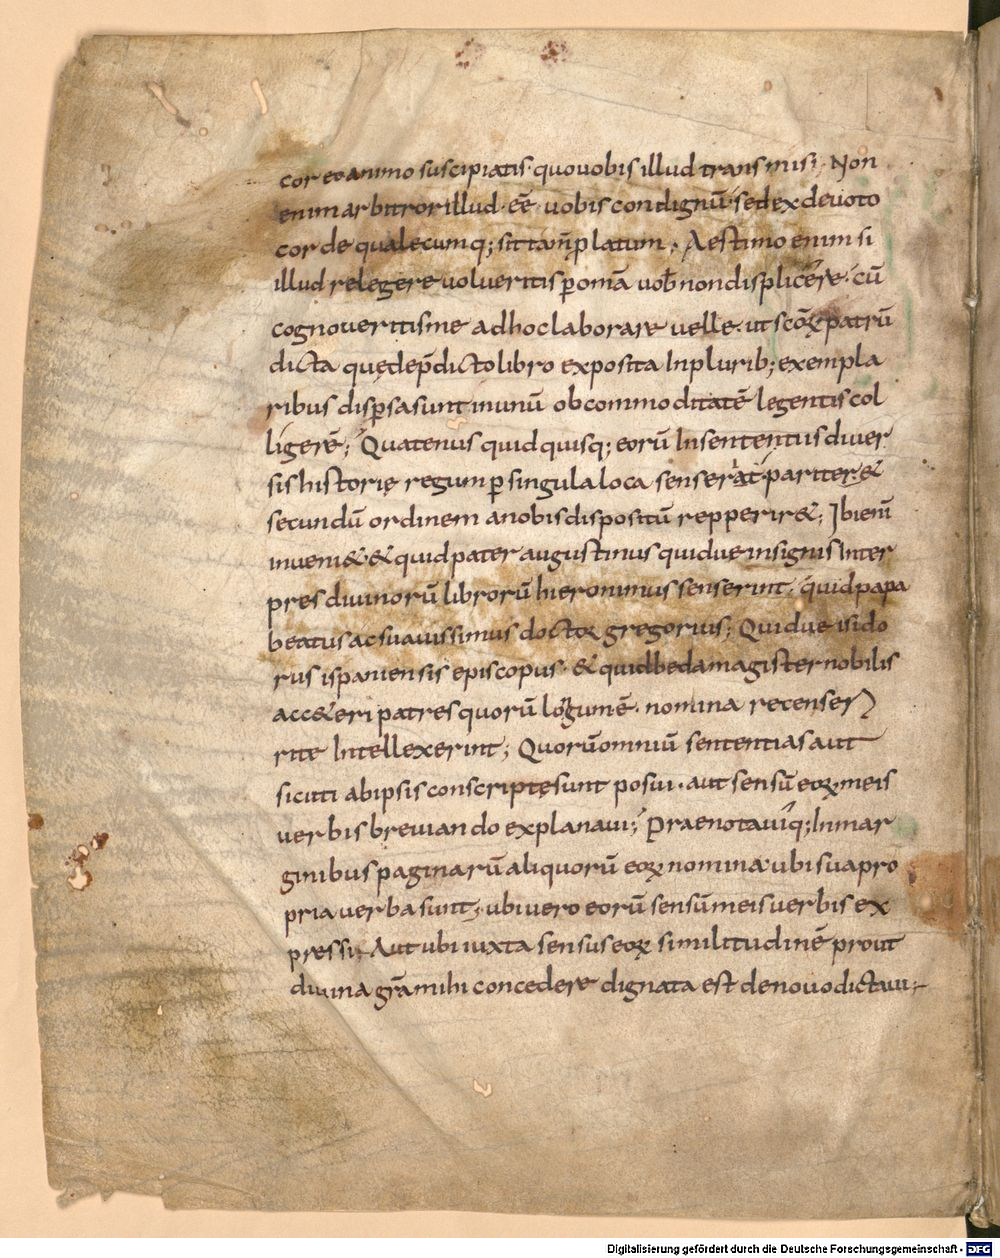 cor eo animo suscipiatis quo uobis illud transmisi; Non
enim arbitror illud eē uobis condignū sed ex deuoto
corde qualecumq; sit tam̄ platum. Aestimo enim si
illud relegere uolueritis p omā uob non displicere. cū
cognoueritis me ad hoc laborare uelle. ut scōꝝ patrū
dicta quę de p̄dicto libro exposita In plurib; exempla
ribus dispersa sunt in unū ob commoditatē legentis col
ligerē; Quatenus quid quisq; eorū In sententiis diuer
sis historię regum p singula loca senserat pariter &
secundū ordinem a nobis dispositū repperir&; Ibi eni
inueni& & quid pater augustinus quidue insignis Inter
pres diuinorū librorū hieronimus senserint. quid papa
beatus ac suauissimus doctor gregorius; Quidue isido
rus ispaniensis episcopus. & quid beda magister nobilis
acc&eri patres quorū longū ē. nomina recenser
rite Intellexerint; Quorū omniū sententias aut
sicuti ab ipsis conscriptę sunt posui. aut sensū eoꝝ meis
uerbis breuiando explanaui; Praenotauiq; In mar
ginibus paginarū aliquorū eoꝝ nomina ubi sua pro
pria uerba sunt, ubi uero eorū sensū meis uerbis ex
pressi; Aut ubi iuxta sensus eoꝝ similitudinē prout
diuina grā mihi concedere dignata est de nouo dictaui;
Digitalisierung gefördert durch die Deutsche Forschungsgemeinschaft - DFG